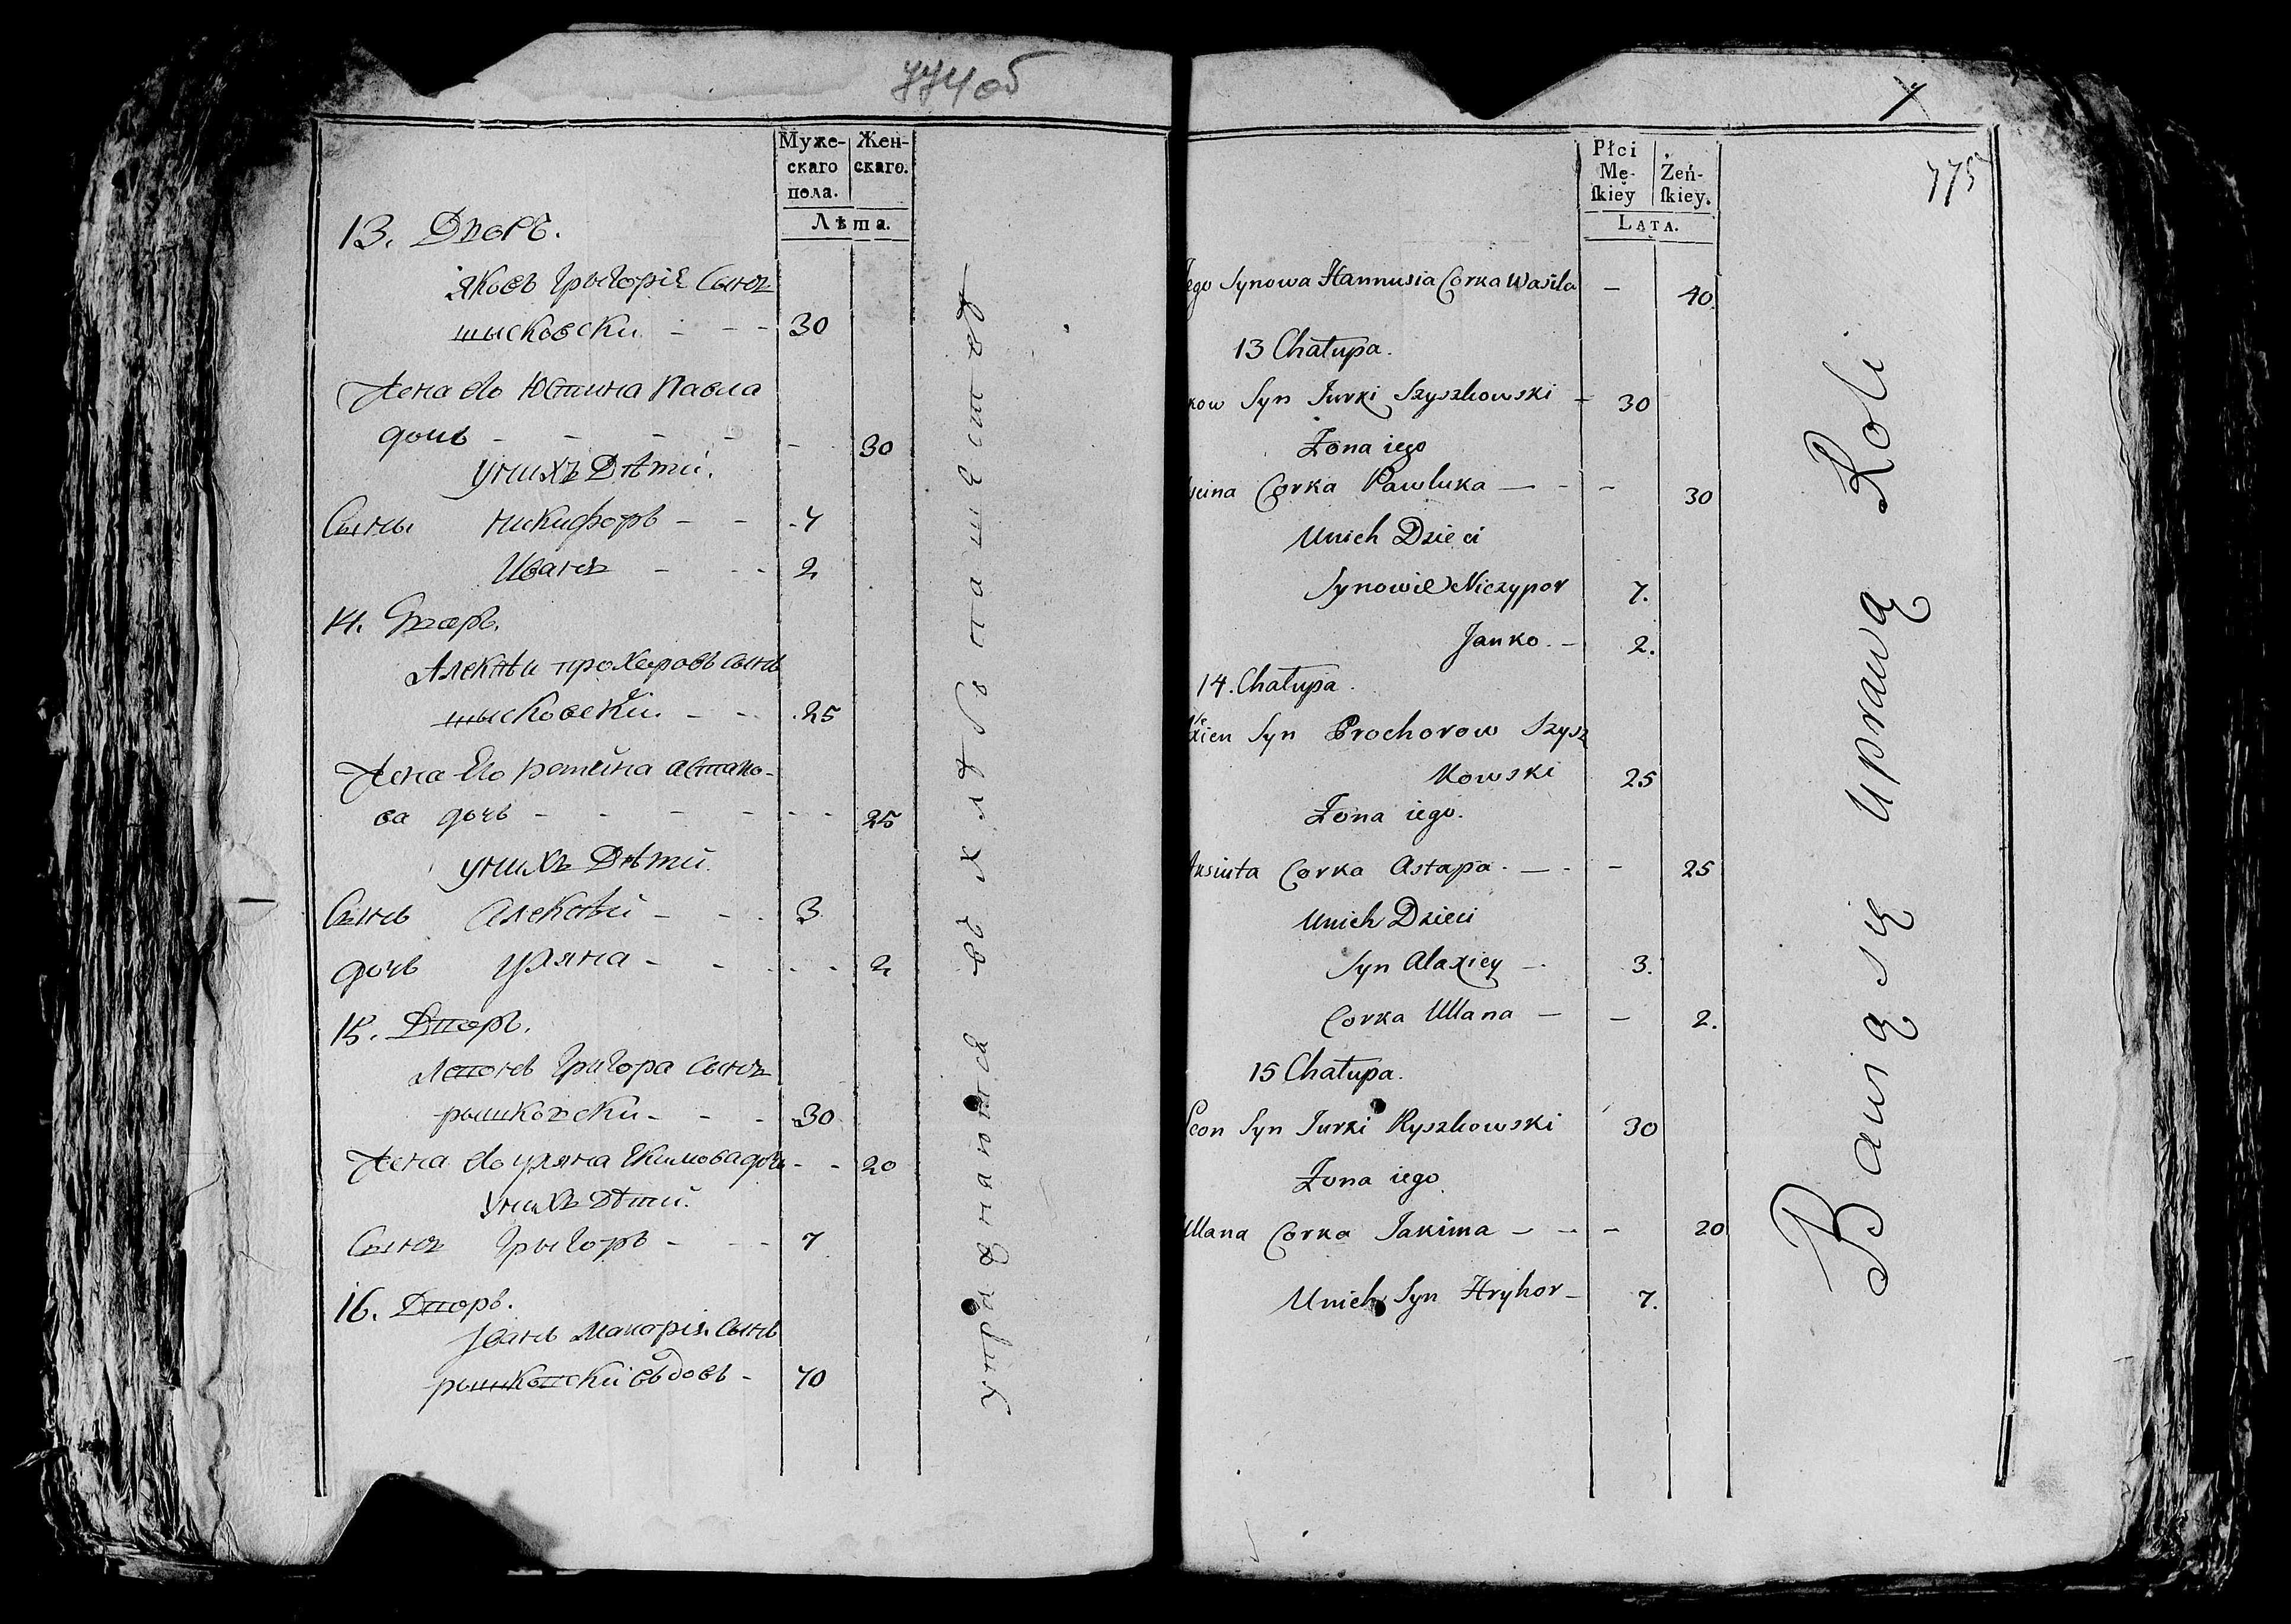 774об
Муже- Жен-
скаго скаго.
пола.
Лѣта.
13. Дворъ.
Яковъ Грыгорія Сынъ
шысковски - - - 30
Жена его Юстина Павла
дочь - - - - - 30
унихъ Дѣти.
Сыны никифоръ - - 7
Иванъ - - - 2
14. Дворъ.
Алексѣи прохоровъ сынъ
шысковски - - 25
Жена Его
ва дочь - - - - - - 25
унихъ Дѣти
Сынъ алексѣй - - - 3
дочь уляна - - - - 2
15. Дворъ.
Леонъ Григора Сынъ
рышковски - - - 30
Жена его уляна Екимова дочь - - 20
Унихъ Дѣти.
Сынъ Грыгоръ - - - 7
16. Дворъ.
Іванъ Макарія Сынъ
рышковскі вьдовъ - 70
7
775
Płci
Mę- Żeń-
ſkiey ſkiey.
LATA.
Jego Synowa Hannusia Corka Wasila - 40.
13 Chałupa.
kow Syn Jurki Szyszkowski - 30
Żona iego
Corka Pawluka - - - 30
Unich Dzieci
Synowie Niczypor 7.
Janko. - 2.
14. Chałupa.
xien Syn Prochorow Szysz
kowski 25
Żona iego.
Corka Astapa. - - - 25
Unich Dzieci
Syn Alaxiey - 3.
Corka Ullana - - 2.
15 Chałupa.
Leon Syn Jurki Ryszkowski 30
Żona iego
Ullana Corka Jakima - - - 20
Unich Syn Hryhor - 7.
Bawią się Uprawą Roli